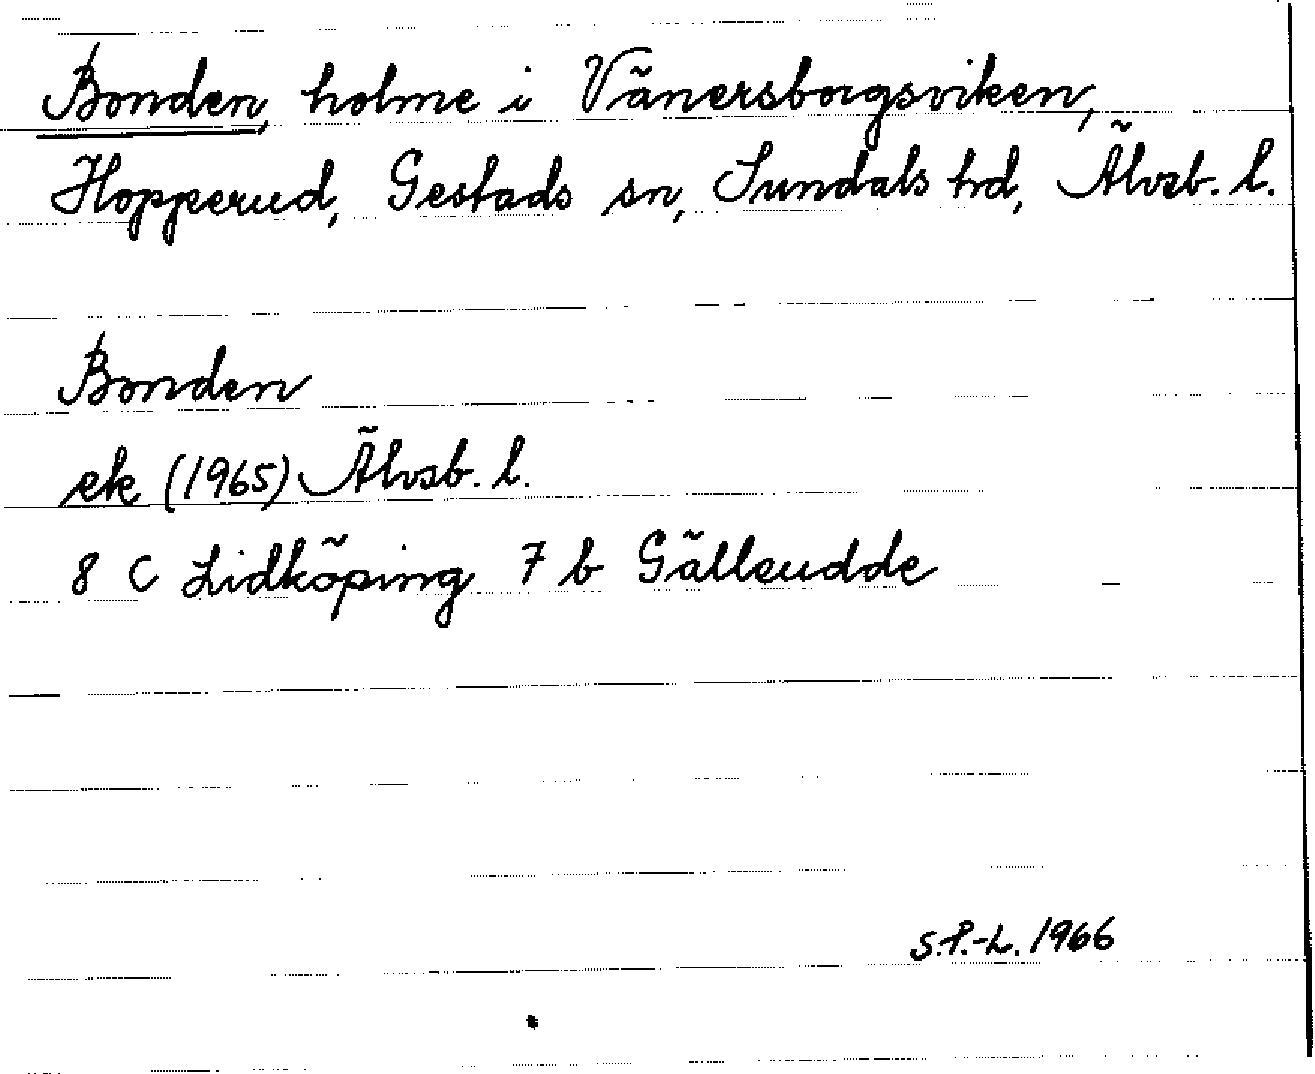 Bonden, holme i Vänersborgsviken,
Hopperud, Gestads sn, Sundals hd, Älvsb. l.
Bonden
ek (1965) Älvsb. l.
8 C Lidköping 7 b Gälleudde
S.P.-L. 1966